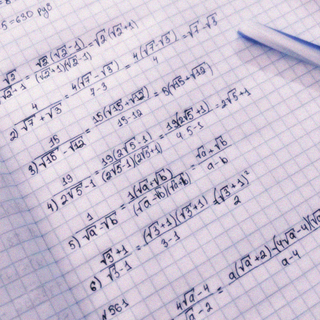 5=630 руб
√2/(√2-1) = √2(√2+1)/((√2-1)(√2+1)) = √2(√2+1)
2) 4/(√7+√3) = 4(√7-√3)/(7-3) = 4(√7-√3)/4 = √7-√3
3) 15/(√15-√12) = 15(√15+√12)/(15-12) = 5(√15+√12)
4) 19/(2√5-1) = 19(2√5+1)/((2√5-1)(2√5+1)) = 19(2√5+1)/(4·5-1) = 2√5+1
5) 1/(√a-√b) = 1(√a+√b)/((√a-√b)(√a+√b)) = (√a+√b)/(a-b)
6) (√3+1)/(√3-1) = (√3+1)(√3+1)/(3-1) = (√3+1)²/2
√561
(4√a-4)/(√a-2) = a(√a+2)-(4√a-4)(√a/(a-4)